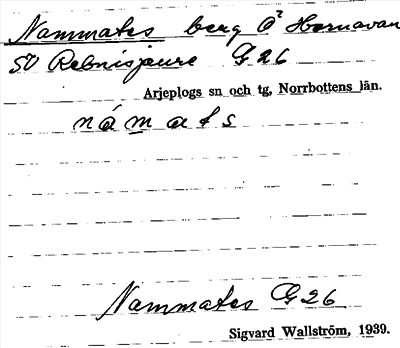 Nammates berg Ö² Hornavan
SV Rebnisjaure G26
Arjeplogs sn och tg, Norrbottens län.
námats
Nammates G26
Sigvard Wallström, 1939.